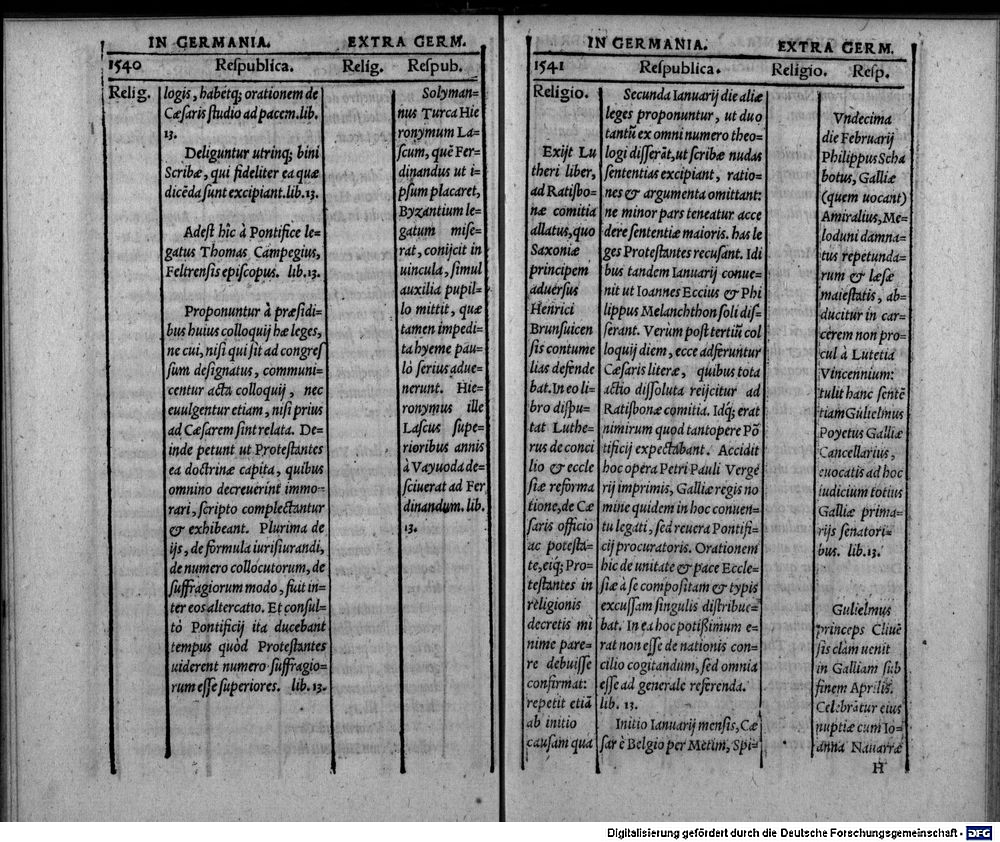 IN GERMANIA. EXTRA GERM.
1540 Respublica. Relig. Respub.
Relig.
logis, habetq; orationem de
Cæsaris studio ad pacem. lib.
13.
Deliguntur utrinq; bini
Scribæ, qui fideliter ea quæ
dicēda sunt excipiant. lib. 13.
Adest hic à Pontifice le-
gatus Thomas Campegius,
Feltrensis episcopus. lib. 13.
Proponuntur à præsidi-
bus huius colloquij hæ leges,
ne cui, nisi qui sit ad congres
sum designatus, communi-
centur acta colloquij, nec
euulgentur etiam, nisi prius
ad Cæsarem sint relata. De-
inde petunt ut Protestantes
ea doctrinæ capita, quibus
omnino decreuerint immo-
rari, scripto complectantur
& exhibeant. Plurima de
ijs, de formula iurisiurandi,
de numero collocutorum, de
suffragiorum modo, fuit in-
ter eos altercatio. Et consul-
tò Pontificij ita ducebant
tempus quòd Protestantes
uiderent numero suffragio-
rum esse superiores. lib. 13.
Solyman-
nus Turca Hie
ronymum La-
scum, quē Fer-
dinandus ut i-
psum placaret,
Byzantium le-
gatum mise-
rat, conijcit in
uincula, simul
auxilia pupil-
lo mittit, quæ
tamen impedi-
ta hyeme pau-
lò serius adue-
nerunt. Hie-
ronymus ille
Lascus supe-
rioribus annis
à Vayuoda de-
sciuerat ad Fer
dinandum. lib.
13.
IN GERMANIA. EXTRA GERM.
1541 Respublica. Religio. Resp.
Religio.
Exijt Lu
theri liber,
ad Ratisbo-
næ comitia
allatus, quo
Saxoniæ
principem
aduersus
Henrici
Brunsuicen
sis contume
lias defende
bat. In eo li-
bro dispu-
tat Luthe-
rus de conci
lio & eccle
siæ reforma
tione, de Cæ
saris officio
ac potesta-
te, eiq; Pro-
testantes in
religionis
decretis mi
nime pare-
re debuisse
confirmat:
repetit etiā
ab initio
causam qua
Secunda Ianuarij die aliæ
leges proponuntur, ut duo
tantū ex omni numero theo-
logi disserāt, ut scribæ nudas
sententias excipiant, ratio-
nes & argumenta omittant:
ne minor pars teneatur acce
dere sententiæ maioris. has le
ges Protestantes recusant. Idi
bus tandem Ianuarij conue-
nit ut Ioannes Eccius & Phi
lippus Melanchthon soli dis-
serant. Verùm post tertiū col
loquij diem, ecce adferuntur
Cæsaris literæ, quibus tota
actio dissoluta reijcitur ad
Ratisbonæ comitia. Idq; erat
nimirum quod tantopere Pō
tificij expectabant. Accidit
hoc opera Petri Pauli Verge
rij imprimis, Galliæ regis no
mine quidem in hoc conuen-
tu legati, sed reuera Pontifi-
cij procuratoris. Orationem
hic de unitate & pace Eccle-
siæ à se compositam & typis
excussam singulis distribue-
bat. In ea hoc potißimum e-
rat non esse de nationis con-
cilio cogitandum, sed omnia
esse ad generale referenda.
lib. 13.
Initio Ianuarij mensis, Cæ
sar è Belgio per Metim, Spi-
Vndecima
die Februarij
Philippus Scha
botus, Galliæ
(quem uocant)
Amiralius, Me-
loduni damna-
tus repetunda-
rum & læsæ
maiestatis, ab-
ducitur in car-
cerem non pro
cul à Lutetia
Vincennium:
tulit hanc sentē
tiam Gulielmus
Poyetus Galliæ
Cancellarius,
euocatis ad hoc
iudicium totius
Galliæ prima-
rijs senatori-
bus. lib. 13.
Gulielmus
princeps Cliuē
sis clàm uenit
in Galliam sub
finem Aprilis.
Celebrātur eius
nuptiæ cum Io-
anna Nauarræ
H
Digitalisierung gefördert durch die Deutsche Forschungsgemeinschaft - DFG